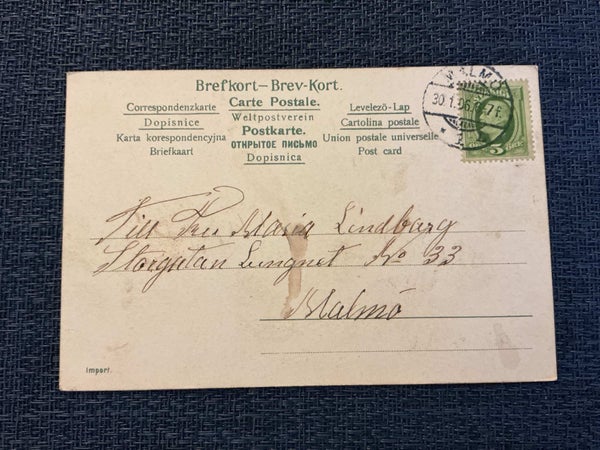 Brefkort–Brev-Kort.
Correspondenzkarte Carte Postale. Levelező-Lap
Dopisnice Weltpostverein Cartolina postale
Karta korespondencyjna Postkarte. Union postale universelle
Briefkaart ОТКРЫТОЕ ПИСЬМО Post card
Dopisnica
MALMÖ
30.1.06. 7 f.
5
Till Fru Maria Lindbarg
Storgatan Lungnet No 33
Malmö
Import.